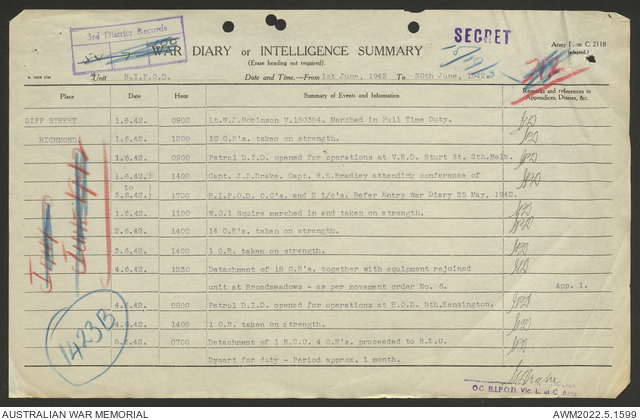 3rd District Records
SECRET
WAR DIARY or INTELLIGENCE SUMMARY
Army Form C. 2118
(adapted.)
(Erase heading not required).
Unit B.I.P.O.D. Date and Time.—From 1st June, 1942 To 30th June, 1942.
Place Date Hour Summary of Events and Information Remarks and references to
Appendices, Diaries, &c.
GIFF STREET 1.6.42. 0900 Lt.W.J.Robinson V.150364. Marched in Full Time Duty.
RICHMOND 1.6.42. 1200 12 O.R's. taken on strength.
1.6.42. 0900 Patrol D.I.D. opened for operations at V.R.D. Sturt St. Sth.Melb.
1.6.42.) 1400 Capt. J.P.Drake, Capt. R.H.Bradley attending conference of
to )
3.6.42.) 1700 B.I.P.O.D. O.C's. and 2 i/c's. Refer Entry War Diary 25 May, 1942.
1.6.42. 1100 W.O.1 Squire marched in and taken on strength.
2.6.42. 1400 14 O.R's. taken on strength.
3.6.42. 1400 1 O.R. taken on strength.
4.6.42. 1230 Detachment of 18 O.R's. together with equipment rejoined
unit at Broadmeadows - as per movement order No. 6. App. 1.
4.6.42. 0900 Patrol D.I.D. opened for operations at B.O.D. Nth.Kensington.
4.6.42. 1400 1 O.R. taken on strength.
5.6.42. 0700 Detachment of 1 N.C.O. 4 O.R's. proceeded to R.S.O.
Dysart for duty - Period approx. 1 month.
1423B
O.C. B.I.P.O.D. Vic. L. of C. Area
AUSTRALIAN WAR MEMORIAL
AWM2022.5.1599